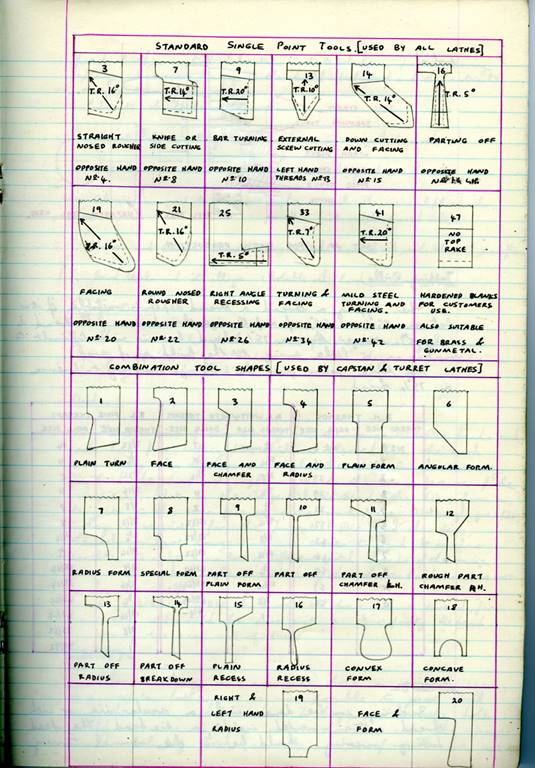 STANDARD SINGLE POINT TOOLS. [USED BY ALL LATHES]
3 T.R. 16°
7 T.R. 14°
9 T.R. 20°
13 T.R. 10°
14 T.R. 14°
16 T.R. 5°
STRAIGHT NOSED ROUGHER
KNIFE OR SIDE CUTTING
BAR TURNING
EXTERNAL SCREW CUTTING
DOWN CUTTING AND FACING
PARTING OFF
OPPOSITE HAND Nº 4.
OPPOSITE HAND Nº 8
OPPOSITE HAND Nº 10
LEFT HAND THREADS Nº 13
OPPOSITE HAND Nº 15
OPPOSITE HAND
19 16°
21 T.R. 16°
25 T.R. 5°
33 T.R. 7°
41 T.R. 20°
47 NO TOP RAKE
FACING
ROUND NOSED ROUGHER
RIGHT ANGLE RECESSING
TURNING & FACING
MILD STEEL TURNING AND FACING.
HARDENED BLANKS FOR CUSTOMERS USE.
OPPOSITE HAND Nº 20
OPPOSITE HAND Nº 22
OPPOSITE HAND Nº 26
OPPOSITE HAND Nº 34
OPPOSITE HAND Nº 42
ALSO SUITABLE FOR BRASS & GUNMETAL.
COMBINATION TOOL SHAPES [USED BY CAPSTAN & TURRET LATHES]
1
2
3
4
5
6
PLAIN TURN
FACE
FACE AND CHAMFER
FACE AND RADIUS
PLAIN FORM
ANGULAR FORM.
7
8
9
10
11
12
RADIUS FORM
SPECIAL FORM
PART OFF PLAIN FORM
PART OFF
PART OFF CHAMFER H.
ROUGH PART CHAMFER H.
13
14
15
16
17
18
PART OFF RADIUS
PART OFF BREAKDOWN
PLAIN RECESS
RADIUS RECESS
CONVEX FORM
CONCAVE FORM.
RIGHT & LEFT HAND RADIUS
19
FACE & FORM
20